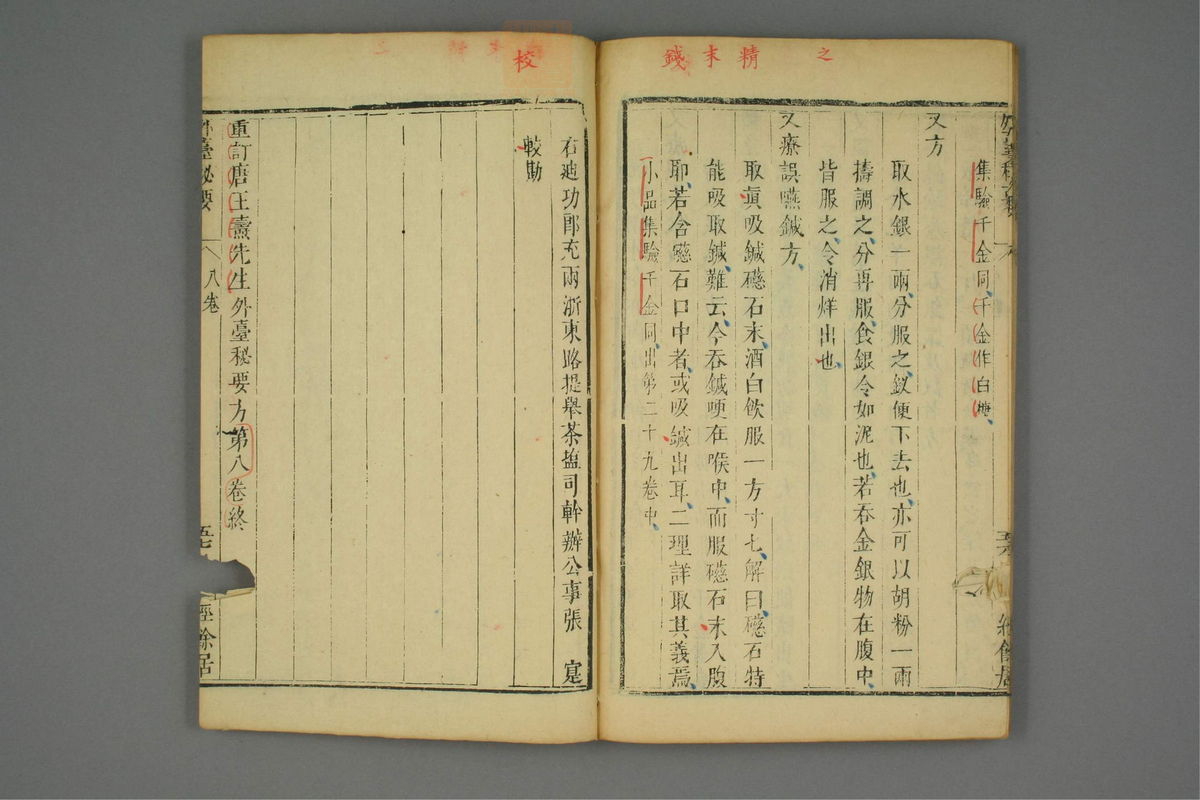 之
精
末
鍼
集驗千金同千金作白糖
又方
取水銀一兩分服之釵便下去也亦可以胡粉一兩
擣調之分再服食銀令如泥也若吞金銀物在腹中
皆服之令消烊出也
又療誤嚥鍼方
取真吸鍼礠石末酒白飲服一方寸匕解曰礠石特
能吸取鍼難云今吞鍼哽在喉中而服礠石末入腹
耶若含礠石口中者或吸鍼出耳二理詳取其義焉
小品集驗千金同出第二十九卷中
外臺秘要
經餘居
校
右迪功郎充兩浙東路提舉茶塩司幹辦公事張 寔
較勘
重訂唐王燾先生外臺秘要方第八卷終
外臺秘要 八卷
經餘居